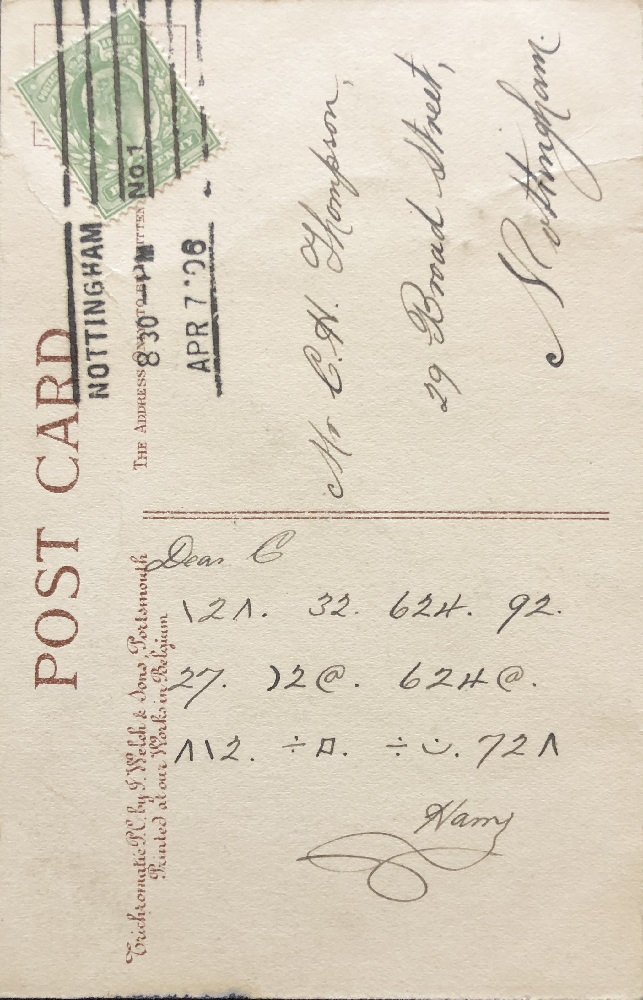 POST CARD
THE ADDRESS ONLY TO BE WRITTEN
NOTTINGHAM
No.1
8 30 PM
APR 7 '06
Mr C. H. Thompson,
29 Broad Street,
Nottingham.
Trichromatic P.C. by J. Welch & Sons, Portsmouth
Printed at our Works in Belgium
Dear C
\2Λ. 32. 624. 92.
27. )2@. 624@.
Λ\2. ÷¤. ÷·͝·. 72Λ
Harry